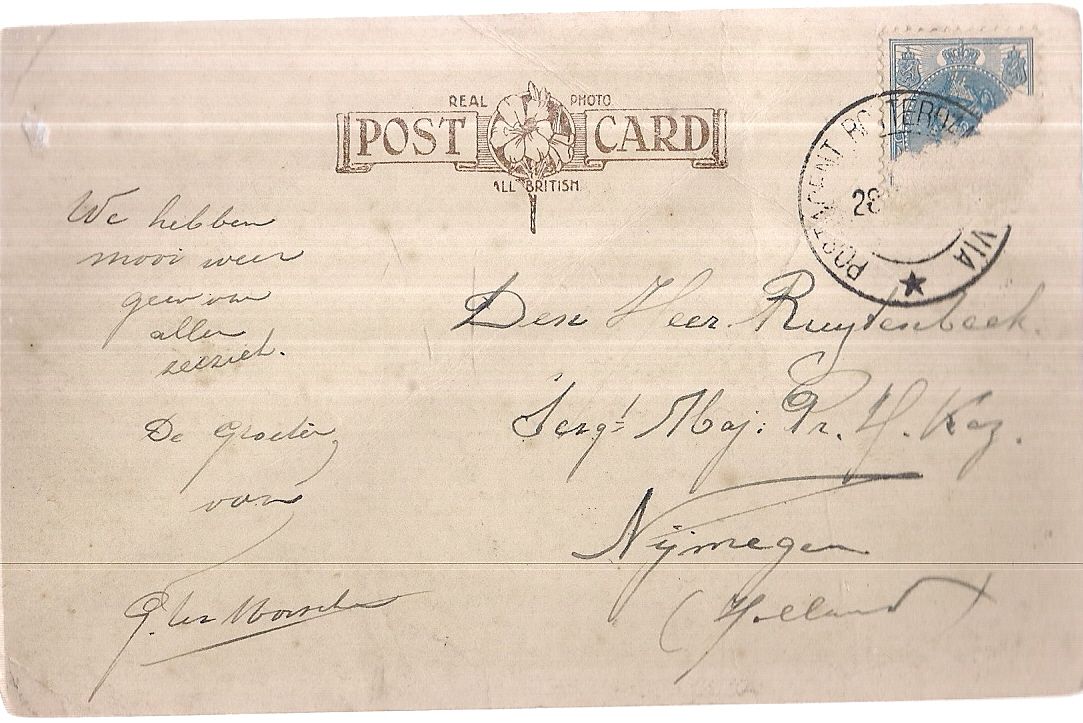 REAL PHOTO
POST CARD
ALL BRITISH
POSTAGENT ROTTERDA VIA
28
We hebben
mooi weer
geen van
allen
zeeziek.
De Groeten
van
G. ter
Den Heer Ruytenbeek.
Sergt Maj: Pr. H. Kaz.
Nijmegen
(Holland)